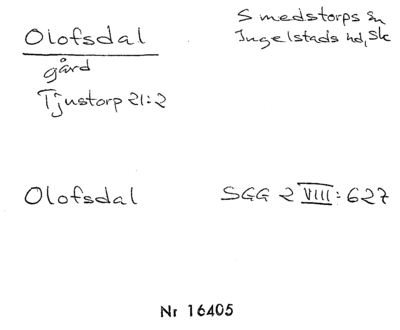 Olofsdal
Smedstorps sn
Ingelstads hd, Sk
gård
Tjustorp 21:2
Olofsdal
SGG 2 VIII: 627
Nr 16405